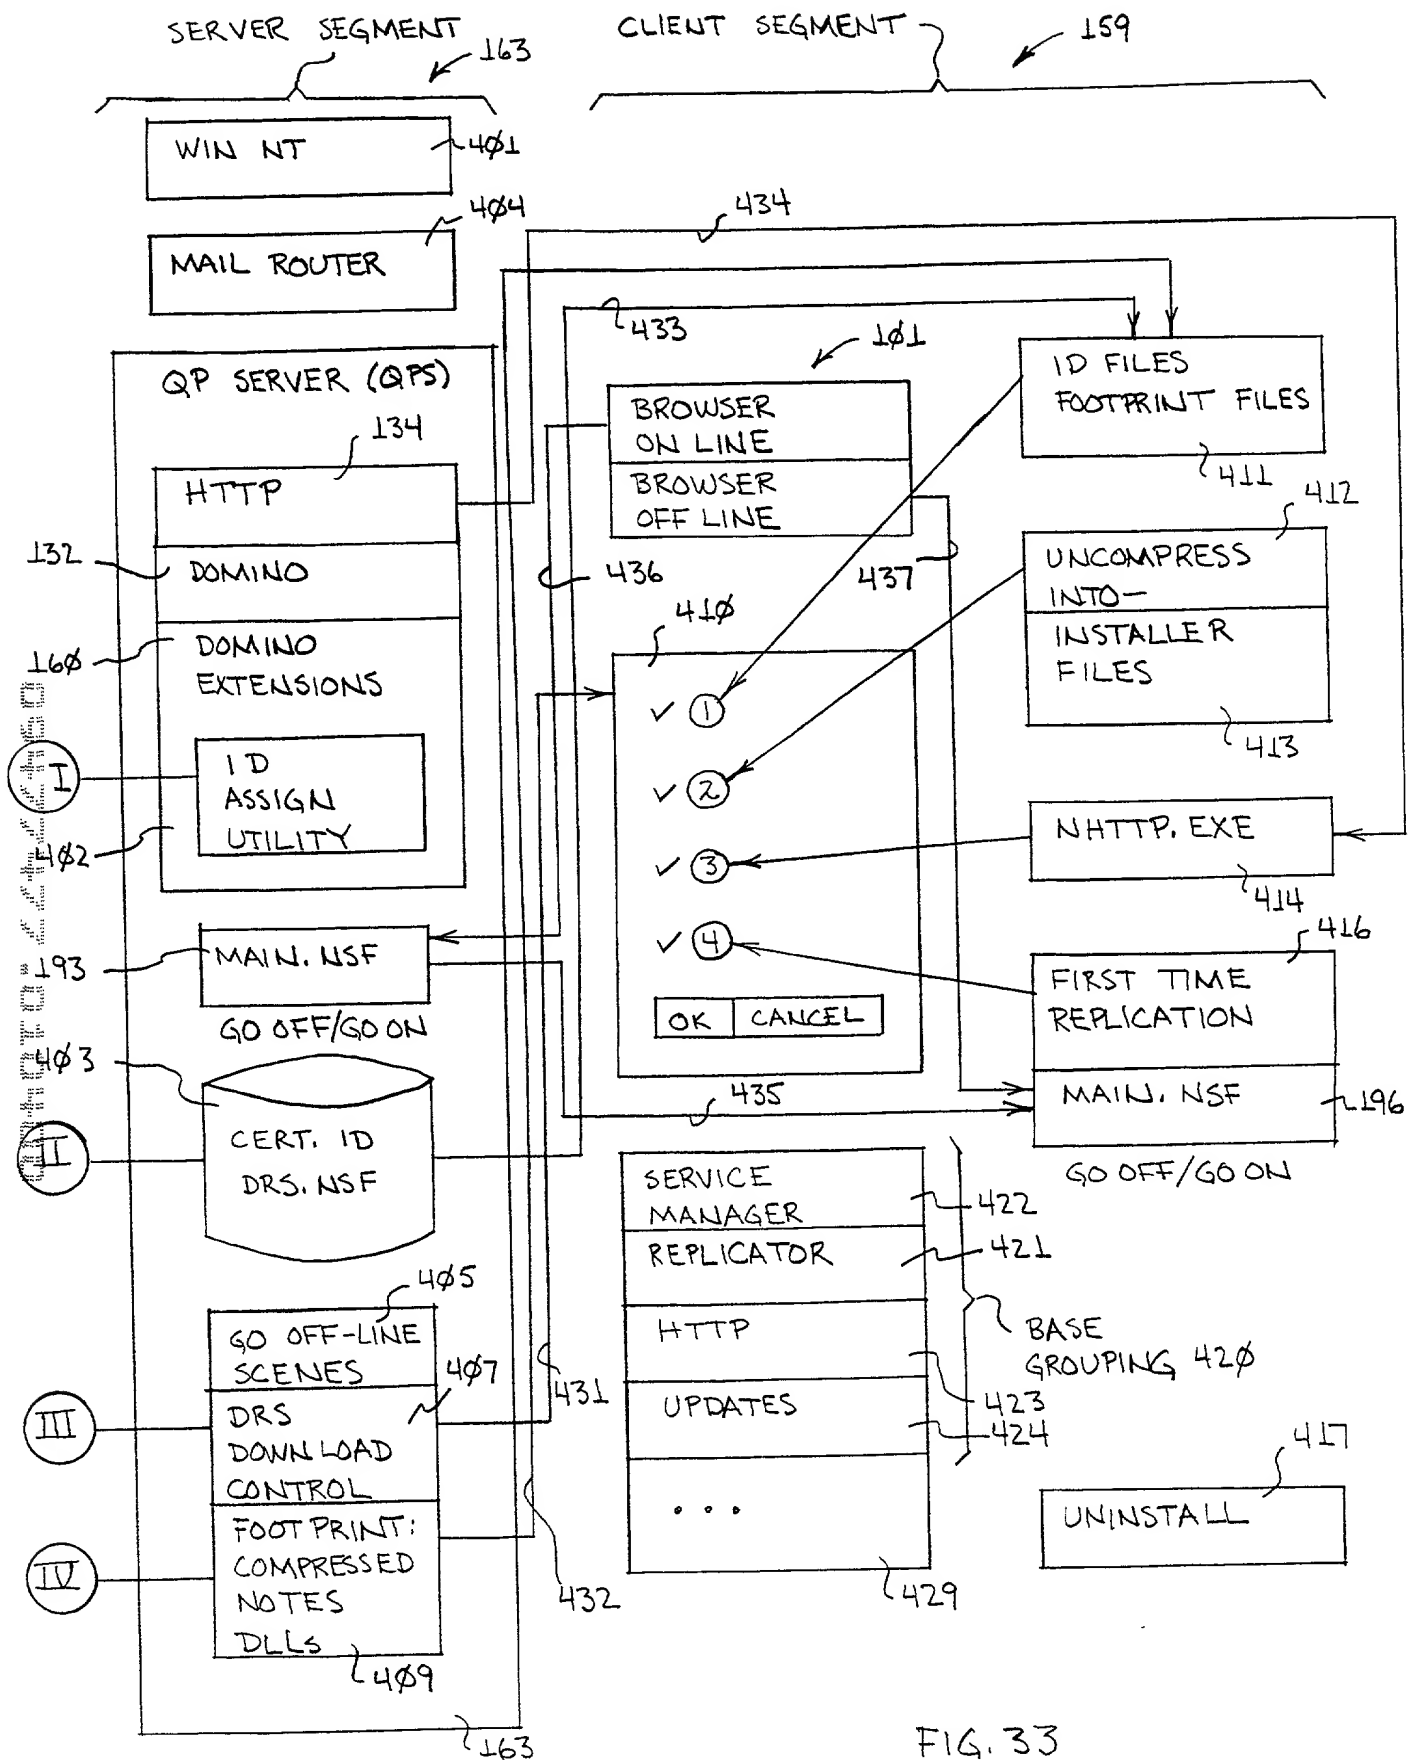 SERVER SEGMENT
163
CLIENT SEGMENT
159
WIN NT
401
404
MAIL ROUTER
434
433
101
QP SERVER (QPS)
134
HTTP
132
DOMINO
160
DOMINO
EXTENSIONS
I
ID
ASSIGN
UTILITY
402
193
MAIN.NSF
GO OFF/GO ON
403
II
CERT. ID
DRS.NSF
405
GO OFF-LINE
SCENES
407
III
DRS
DOWNLOAD
CONTROL
IV
FOOTPRINT:
COMPRESSED
NOTES
DLLs
409
163
BROWSER
ON LINE
BROWSER
OFF LINE
436
437
410
✓ 1
✓ 2
✓ 3
✓ 4
OK CANCEL
435
431
432
ID FILES
FOOTPRINT FILES
411
412
UNCOMPRESS
INTO—
INSTALLER
FILES
413
NHTTP.EXE
414
416
FIRST TIME
REPLICATION
MAIN.NSF
196
GO OFF/GO ON
SERVICE
MANAGER
422
REPLICATOR
421
HTTP
423
UPDATES
424
...
429
BASE
GROUPING 420
417
UNINSTALL
FIG. 33